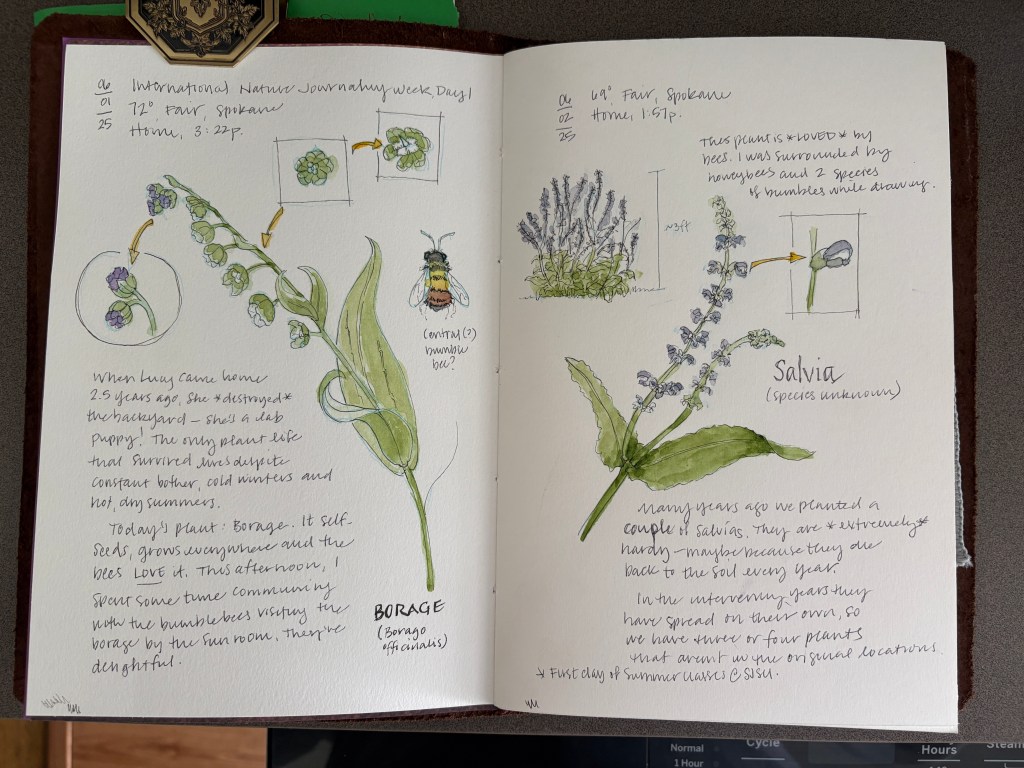 06
01
25
International Nature Journaling Week, Day 1
72°, Fair, Spokane
Home, 3:22p.
Central(?)
bumble
bee?
When Lucy came home
2.5 years ago, she *destroyed*
the backyard – she's a lab
puppy! The only plant life
that survived lives despite
constant bother, cold winters and
hot, dry summers.
Today's plant: Borage. It self-
seeds, grows everywhere and the
bees LOVE it. This afternoon, I
spent some time communing
with the bumblebees visiting the
borage by the sun room. They're
delightful.
BORAGE
(Borago
officinalis)
06
02
25
69°, Fair, Spokane
Home, 1:57p.
This plant is *LOVED* by
bees. I was surrounded by
honeybees and 2 species
of bumbles while drawing.
~3ft
Salvia
(species unknown)
Many years ago we planted a
couple of salvias. They are *extremely*
hardy – maybe because they die
back to the soil every year.
In the intervening years they
have spread on their own, so
we have three or four plants
that aren't in the original locations.
→ First day of summer classes @ SJSU.
Normal
1 Hour
Cycle
Hours
Steam